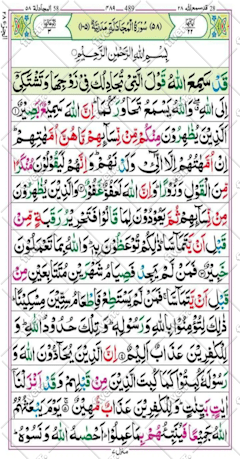 قد سمع الله ٢٨ ٤٨٩ المجادلة ٥٨
(٥٨) سُوْرَةُ الْمُجَادَلَةِ مَدَنِيَّةٌ (١٠٥)
بِسْمِ اللهِ الرَّحْمٰنِ الرَّحِيْمِ
قَدْ سَمِعَ اللهُ قَوْلَ الَّتِيْ تُجَادِلُكَ فِيْ زَوْجِهَا وَتَشْتَكِيْٓ
اِلَى اللهِ وَاللهُ يَسْمَعُ تَحَاوُرَكُمَا اِنَّ اللهَ سَمِيْعٌۢ بَصِيْرٌ
اَلَّذِيْنَ يُظٰهِرُوْنَ مِنْكُمْ مِّنْ نِّسَآئِهِمْ مَّا هُنَّ اُمَّهٰتِهِمْ
اِنْ اُمَّهٰتُهُمْ اِلَّا الّٰٓـِٔيْ وَلَدْنَهُمْ وَاِنَّهُمْ لَيَقُوْلُوْنَ مُنْكَرًا
مِّنَ الْقَوْلِ وَزُوْرًا وَاِنَّ اللهَ لَعَفُوٌّ غَفُوْرٌ وَالَّذِيْنَ يُظٰهِرُوْنَ
مِنْ نِّسَآئِهِمْ ثُمَّ يَعُوْدُوْنَ لِمَا قَالُوْا فَتَحْرِيْرُ رَقَبَةٍ مِّنْ
قَبْلِ اَنْ يَّتَمَآسَّا ذٰلِكُمْ تُوْعَظُوْنَ بِهٖ وَاللهُ بِمَا تَعْمَلُوْنَ
خَبِيْرٌ فَمَنْ لَّمْ يَجِدْ فَصِيَامُ شَهْرَيْنِ مُتَتَابِعَيْنِ مِنْ
قَبْلِ اَنْ يَّتَمَآسَّا فَمَنْ لَّمْ يَسْتَطِعْ فَاِطْعَامُ سِتِّيْنَ مِسْكِيْنًا
ذٰلِكَ لِتُؤْمِنُوْا بِاللهِ وَرَسُوْلِهٖ وَتِلْكَ حُدُوْدُ اللهِ وَ
لِلْكٰفِرِيْنَ عَذَابٌ اَلِيْمٌ اِنَّ الَّذِيْنَ يُحَآدُّوْنَ اللهَ وَ
رَسُوْلَهٗ كُبِتُوْا كَمَا كُبِتَ الَّذِيْنَ مِنْ قَبْلِهِمْ وَقَدْ اَنْزَلْنَآ
اٰيٰتٍۭ بَيِّنٰتٍ وَلِلْكٰفِرِيْنَ عَذَابٌ مُّهِيْنٌ يَوْمَ يَبْعَثُهُمُ
اللهُ جَمِيْعًا فَيُنَبِّئُهُمْ بِمَا عَمِلُوْا اَحْصٰىهُ اللهُ وَنَسُوْهُ